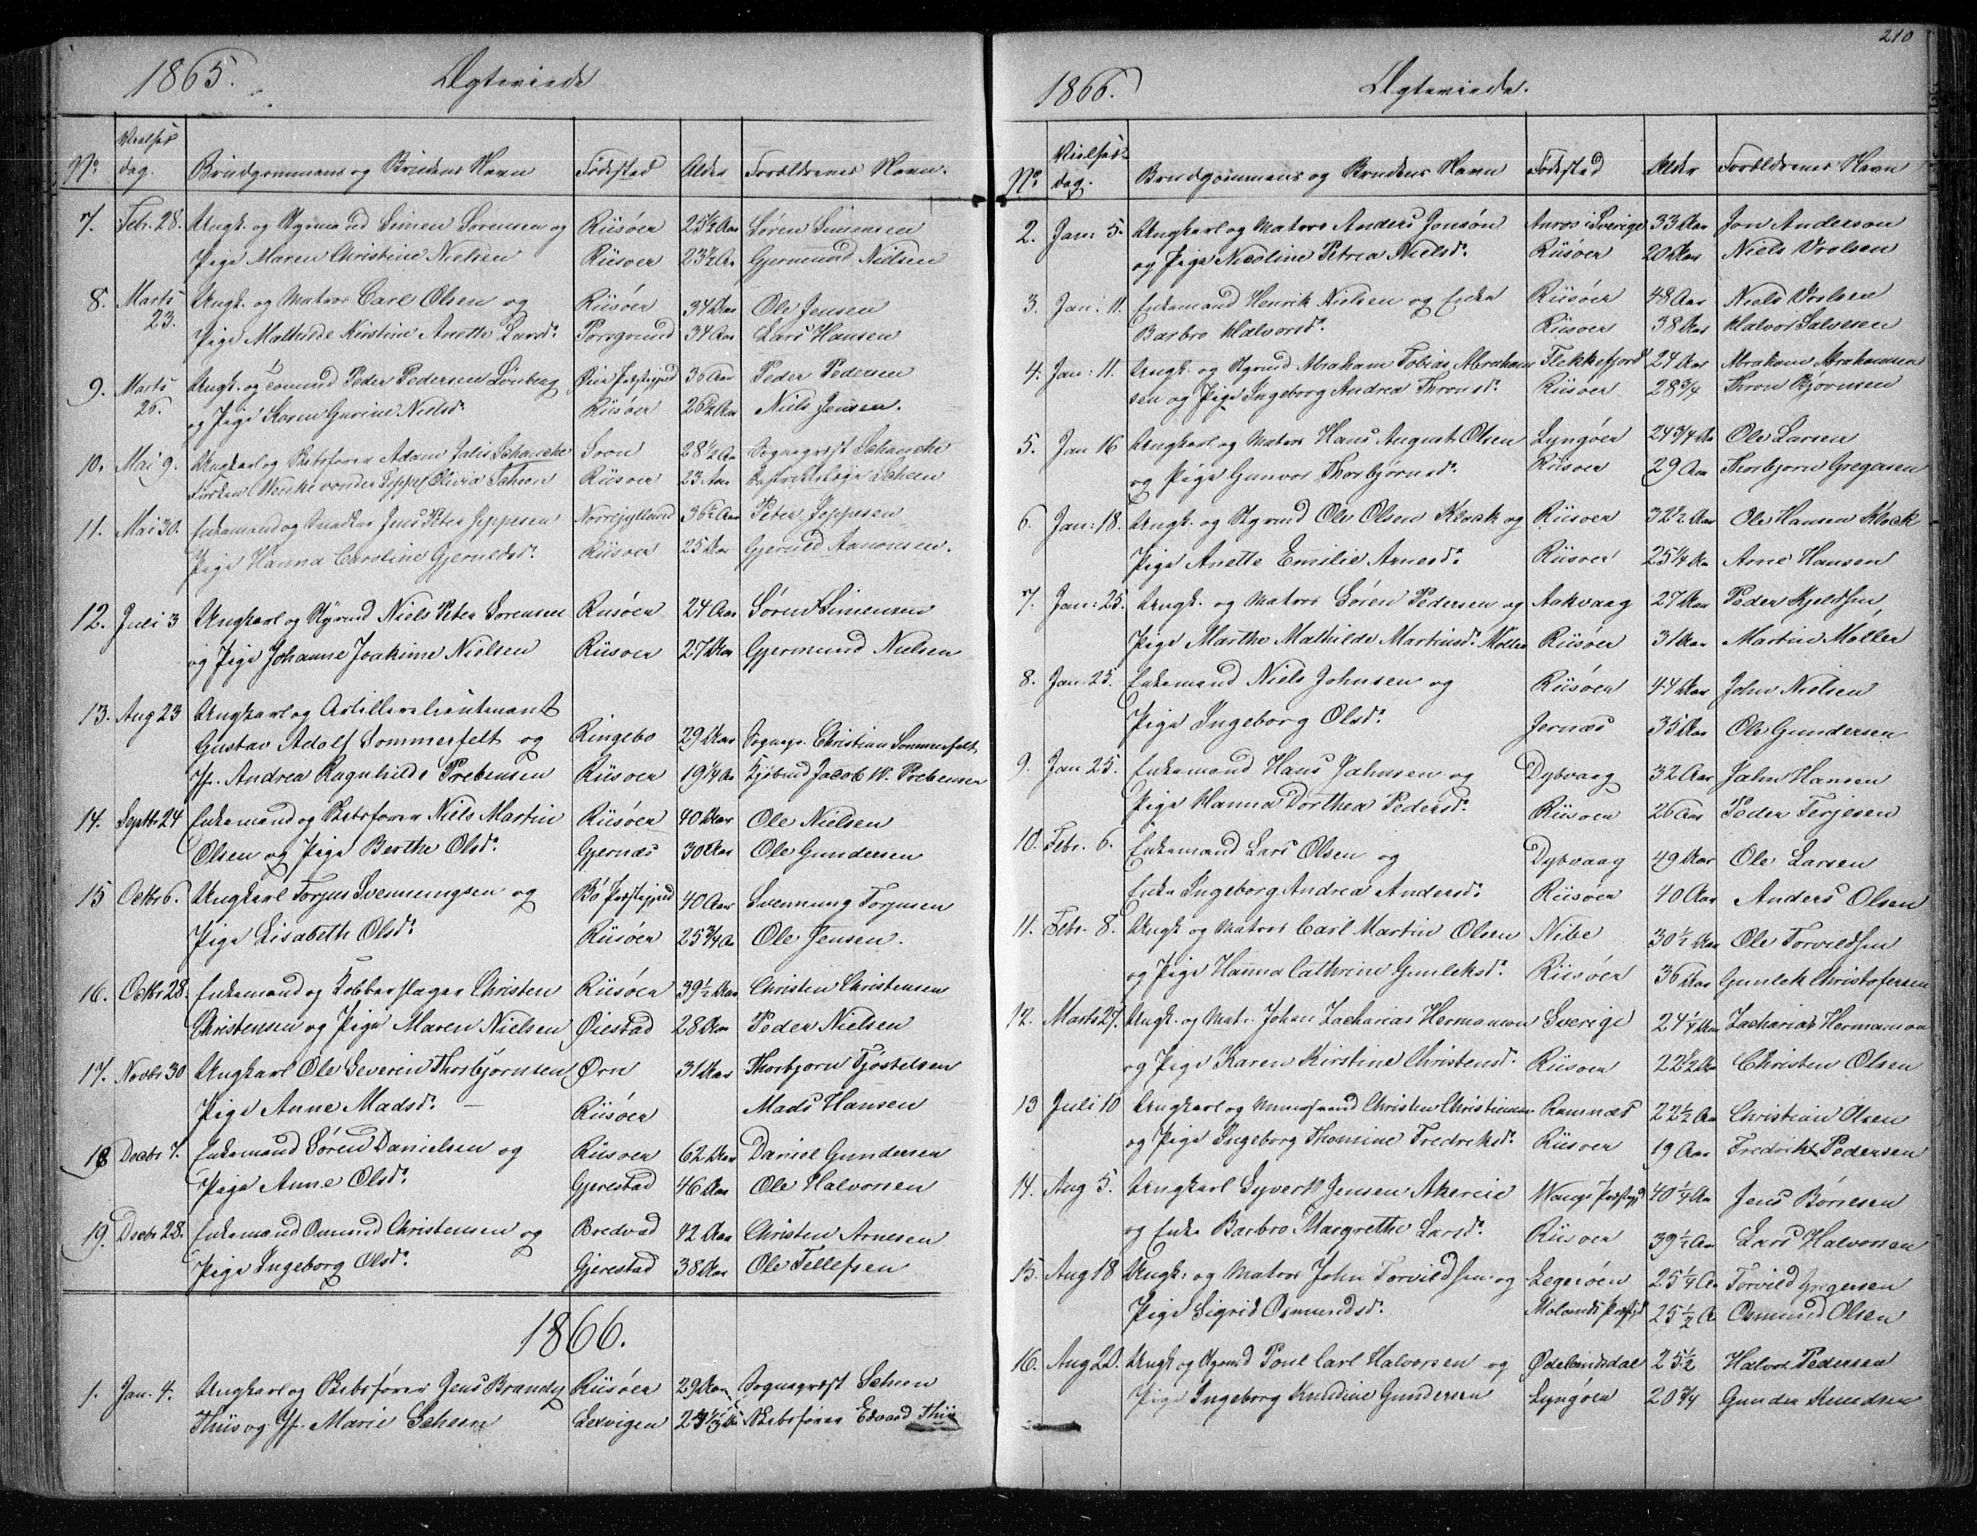 1865. Ægteviede
No. Vielses dag. Brudgommens og Brudens Navn Fødested Alder Forældrenes Navn.
7. Febr. 28. Ungk. og Styrmand Simen Sørensen og Riisøer 25½ Aar Søren Simensen
Pige Maren Christine Nielsen Riisøer 23½ Aar Gjermund Nielsen
8. Marts 23. Ungk. og Matros Carl Olsen og Riisøer 34 Aar Ole Jensen
Pige Mathilde Kirstine Anette Larsd. Porsgrund 34 Aar Lars Hansen
9. Marts 26. Ungk. og Tømmd Peder Pedersen Lønberg Præstegjeld 36 Aar Peder Pedersen
og Pige Karen Gurine Nielsd. Riisøer 26¾ Aar Niels Jensen.
10. Mai 9. Ungkarl og Skibsfører Adam Schancke Soon 28½ Aar Sogneprest Schancke
Frøken Wenke von der Lippe Olivia Scheen Riisøer 23 Aar Scheen
11. Mai 30. Enkemand og Snedker Jens Peter Jeppesen Nørrejylland 36½ Aar Peter Jeppesen
Pige Hanna Caroline Gjeruldsd. Riisøer 25 Aar Gjeruld Aanonsen.
12. Juli 3 Ungkarl og Styrmd Niels Peter Sørensen Riisøer 24 Aar Søren Simensen
og Pige Johanne Joakime Nielsen Riisøer 27 Aar Gjermund Nielsen
13. Aug 23 Ungkarl og Artillerielieutenant
Gustav Adolf Sommerfelt og Ringebo 29 Aar Sognepr. Christian Sommerfelt
Jfr. Andrea Ragnhilde Prebensen Riisøer 19¼ Aar Kjøbmd Jacob W. Prebensen
14. Septbr 24 Enkemand og Skibsfører Niels Martin Riisøer 40 Aar Ole Nielsen
Olsen og Pige Berthe Olsd. Gjernæs 30 Aar Ole Gundersen
15 Octbr 6. Ungkarl Torjus Svennungsen og Bø Præstegjeld 40 Aar Svennung Torjusen
Pige Lisabeth Olsd. Riisøer 25¾ Aar Ole Jensen.
16. Octbr 28. Enkemand og Kobberslager Christen Riisøer 39½ Aar Christen Christensen
Christensen og Pige Maren Nielsen Øiestad 28 Aar Peder Nielsen
17. Novbr 30 Ungkarl Ole Severin Thorbjørnsen Ørn 31 Aar Thorbjørn Tjøstelsen
Pige Anne Madsd. – Riisøer Mads Hansen
18 Decbr 7. Enkemand Søren Danielsen og Riisøer 62 Aar Daniel Gundersen
Pige Anne Olsd. Gjerestad 46 Aar Ole Halvorsen
19. Decbr 28. Enkemand Osmund Christensen og Bredvad 42 Aar Christen Arnesen
Pige Ingeborg Olsd. Gjerestad 38 Aar Ole Tellefsen
1866.
1. Jan. 4. Ungkarl og Skibsfører Jens Brandy Riisøer 29 Aar Sogneprest Scheen
Thiis og Jfr. Marie Scheen Ledvigen Skibsfører Edvard Thiis
210
1866. Ægteviede.
No. Vielses dag. Brudgommens og Brudens Navn Fødested Alder Forældrenes Navn
2. Jan: 5. Ungkarl og Matros Anders Jonsøn i Sverige 33 Aar Jon Anderson
og Pige Nicoline Petrea Nielsd. Riisøer 20 Aar Niels Vrolsen
3. Jan: 11. Enkemand Henrik Nielsen og Enke Riisøer 48 Aar Niels Vrolsen
Barbro Halvorsd. Riisøer 38 Aar Halvor Salvesen
4. Jan: 11. Ungk. og Styrmd Abraham Tobias Abraham Flekkefjord 24 Aar Abraham Abrahamsen
sen og Pige Ingeborg Andrea Thronsd. Riisøer 28¾ Thron Bjørnsen
5. Jan 16 Ungkarl og Matros Hans August Olsen Lyngøer 24¾ Aar Ole Larsen
og Pige Gunvor Thorbjørnsd. Riisøer 29 Aar Thorbjørn Gregersen
6. Jan: 18. Ungk. og Styrmd Ole Olsen Klock og Riisøer 32½ Aar Ole Hansen Klock
Pige Anette Emilie Arnesd. Riisøer 25¼ Aar Arne Hansen
7. Jan: 25. Ungk. og Matros Søren Pedersen og Askvaag 27 Aar Peder Kjeldsen
Pige Marthe Mathilde Martinsd. Møller Riisøer 31 Aar Martin Møller
8. Jan: 25. Enkemand Niels Johnsen og Riisøer 44 Aar John Nielsen
Pige Ingeborg Olsd. Jernæs 35 Aar Ole Gundersen
9. Jan 25. Enkemand Hans Jahnsen og Dybvaag 32 Aar Jahn Hansen
Pige Hanna Dorthea Pedersd. Riisøer 26 Aar Peder Terjesen
10. Febr. 6. Enkemand Lars Olsen og Dybvaag 49 Aar Ole Larsen
Enke Ingeborg Andrea Andersd. Riisøer 40 Aar Anders Olsen
11. Febr. 8. Ungk og Matros Carl Martin Olsen Nibe 30½ Aar Ole Torvildsen
og Pige Hanna Cathrine Gunleksd. Riisøer 36 Aar Gunlek Christofersen
12. Marts 27. Ungk. og Matr. Johan Zacharias Hermanson Sverige 24¼ Aar Zacharias Hermanson
og Pige Karen Kirstine Christensd. Riisøer 22½ Aar Christen Olsen
13 Juli 10 Ungkarl og Christen Christiansen Ramnæs 22½ Aar Christian Olsen
og Pige Ingeborg Thomine Fredriksd. Riisøer 19 Aar Fredrik Pedersen
14. Aug 5. Ungkarl Syvert Jensen Akereie 40¼ Aar Jens Børresen
og Enke Barbro Margrethe Larsd. Riisøer 39½ Aar Lars Halvorsen
15. Aug 18 Ungk: og Matros John Torvildsen og Egerøen 25¼ Aar Torvild Gregersen
Pige Sigrid Osmundsd. Molands Præstgjd 25½ A Osmund Olsen
16. Aug 20. Ungk og Styrmd Poul Carl Halvorsen og Ødelandsdal 25½ Halvor Pedersen
Pige Ingeborg Knudine Gundersen Lyngøer 20¾ Gunder Knudsen